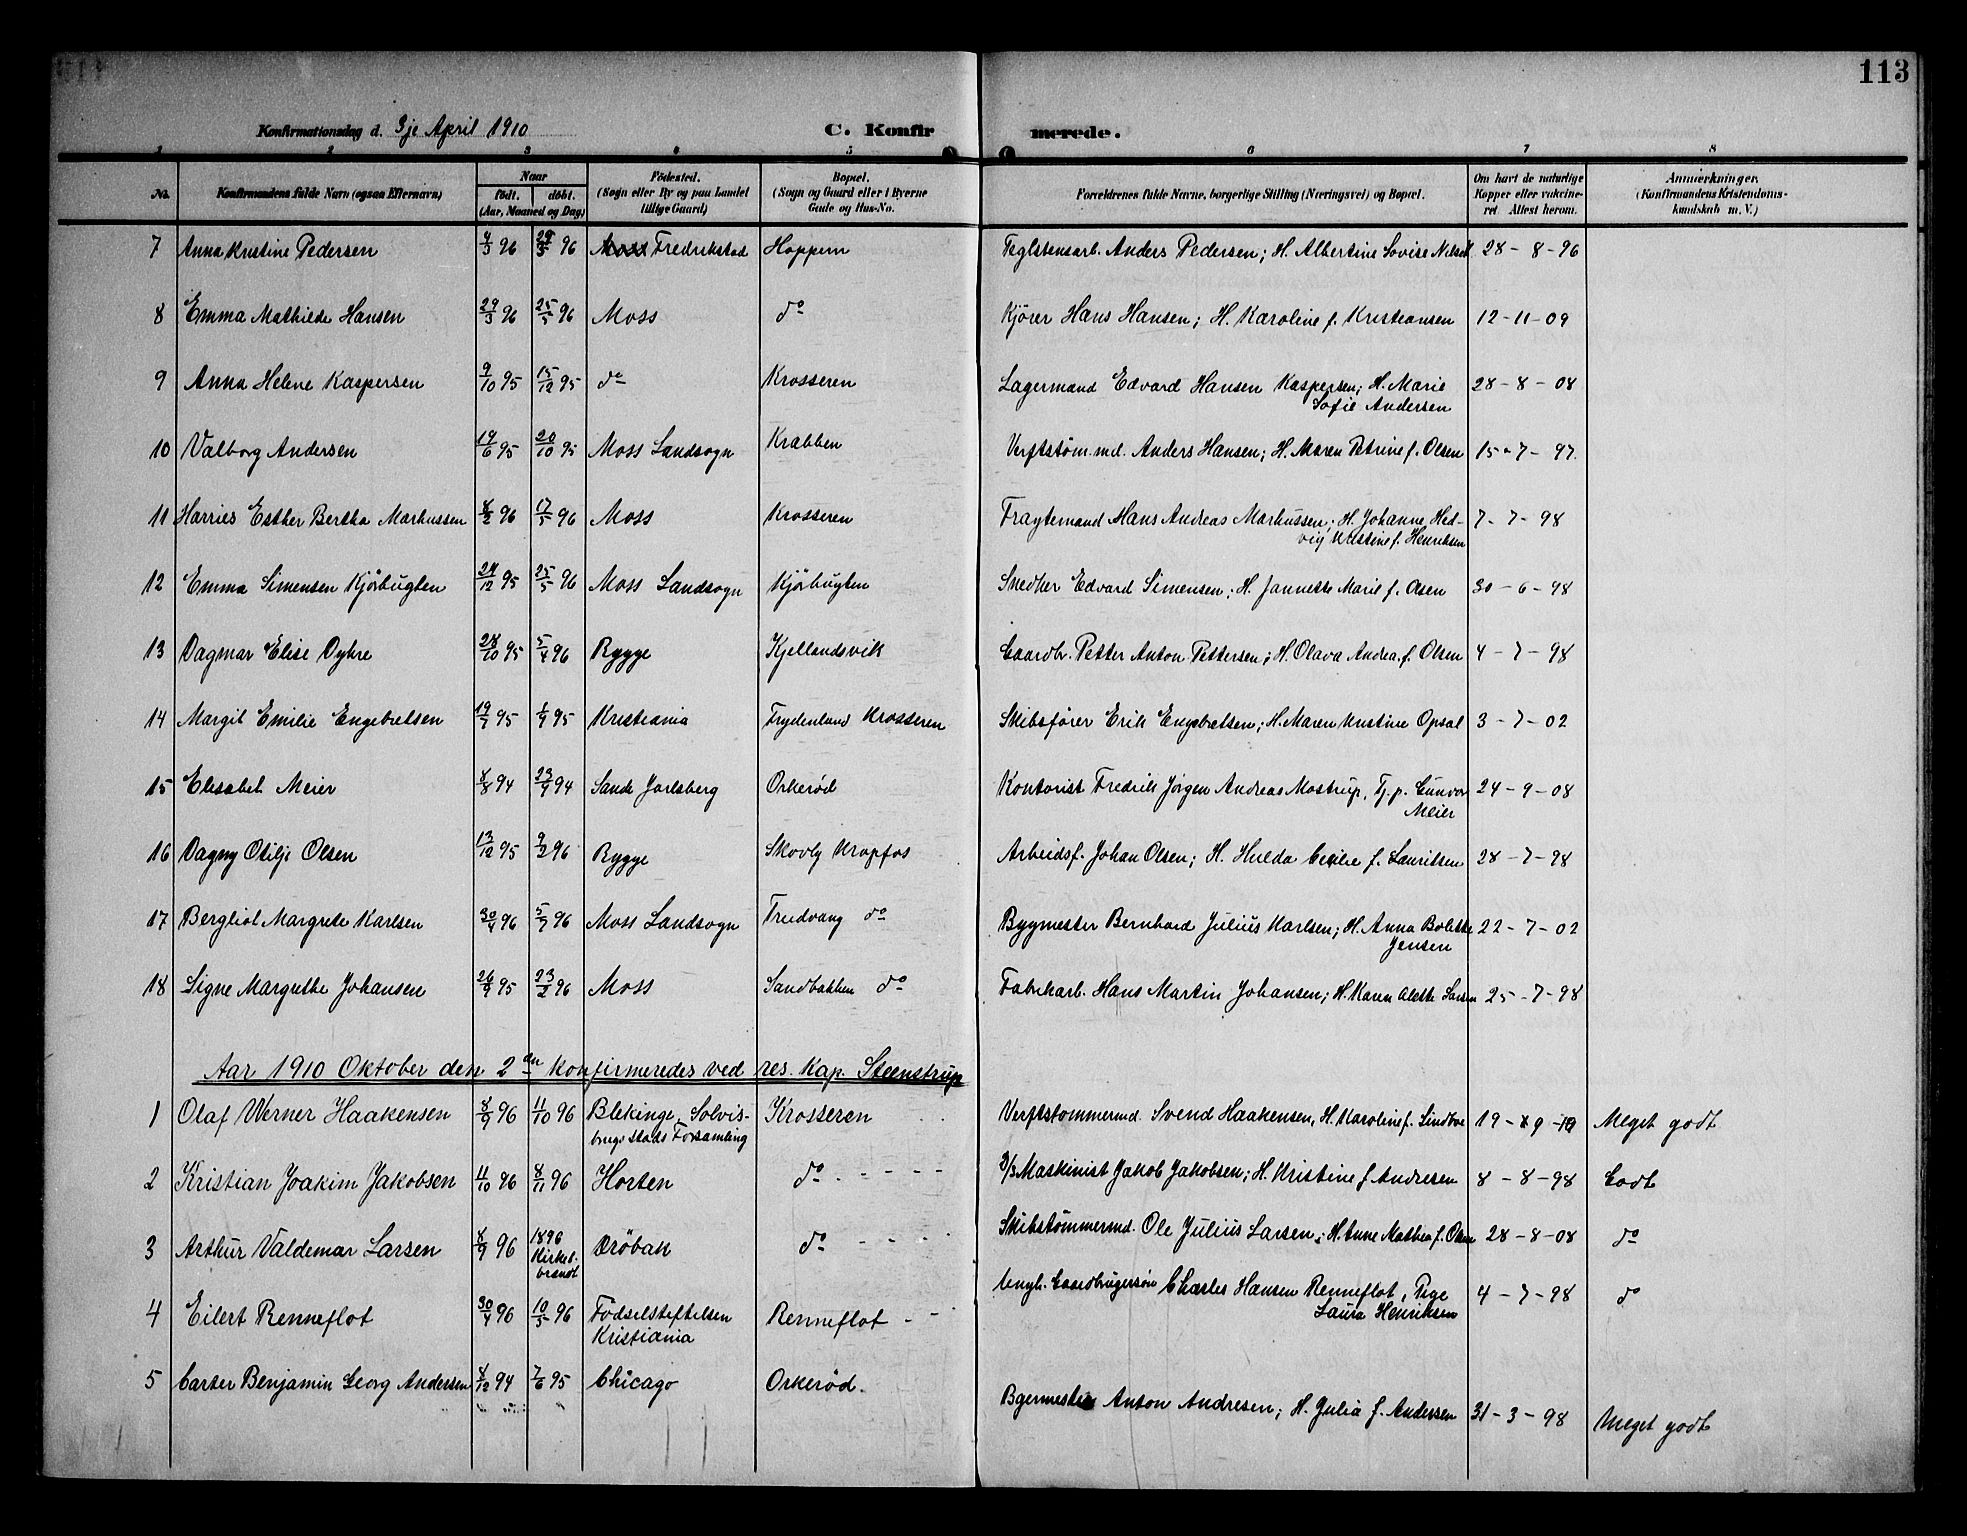 113
Konfirmationsdag d. 3je April 1910 C. Konfirmerede.
1 2 3 4 5 6 7 8
No. Konfirmandens fulde Navn (ogsaa Efternavn) Naar født. døbt. (Aar, Maaned og Dag) Fødested. (Sogn eller By og paa Landet tillige Gaard) Bopæl. (Sogn og Gaard eller i Byerne Gade og Hus-No. Forældrenes fulde Navne, borgerlige Stilling (Næringsvei) og Bopæl. Om havt de naturlige Kopper eller vaccineret. Attest herom. Anmærkninger. (Konfirmandens Kristendomskundskab m. V.)
7 Anna Kristine Pedersen 4/3 96 29/5 96 Moss Fredrikstad Hoppern Teglstensarb. Anders Pedersen; H. Albertine Lovise Nilsen 28-8-96
8 Emma Mathilde Hansen 29/3 96 25/5 96 Moss do Kjörer Hans Hansen; H. Karoline f. Kristiansen 12-11-09
9 Anna Helene Kaspersen 9/10 95 15/12 95 do Krosseren Lagermand Edvard Hansen Kaspersen; H. Marie 28-8-08
Sofie Andersen
10 Valborg Andersen 19/6 95 20/10 95 Moss Landsogn Krabben Verftstøm.md. Anders Hansen; H. Maren Petrine f. Olsen 15-7-97.
11 Harries Esther Bertha Markussen 8/2 96 17/5 96 Moss Krosseren Fragtemand Hans Andreas Markussen; H. Johanne Hed- 7-7-98
vig Kristine f. Henriksen
12 Emma Simensen Kjörbugten 24/12 95 25/5 96 Moss Landsogn Kjörbugten Snedker Edvard Simensen; H. Jannette Marie f. Olsen 30-6-98
13 Dagmar Elise Dyhre 28/10 95 5/4 96 Rygge Kjellandsvik Gaardbr. Petter Anton Pettersen; H. Olava Andrea f. Olsen 4-7-98
14 Margit Emilie Engebretsen 19/7 95 1/9 95 Kristiania Frydenlund Krosseren Skibsfører Erik Engebretsen; H. Maren Kristine Opsal 3-7-02
15 Elisabet Meier 8/8 94 23/9 94 Sande Jarlsberg Orkerød Kontorist Fredrik Jörgen Andreas Mostrup, Tj.p. Gunvor 24-9-08
Meier
16 Dagny Otilje Olsen 13/12 95 9/2 96 Rygge Skovly Kropfos Arbeidsf. Johan Olsen; H. Hulda Cecilie f. Lauritsen 28-7-98
17 Bergliot Margrete Karlsen 30/4 96 5/7 96 Moss Landsogn Trudvang do Bygmester Bernhard Julius Karlsen; H. Anna Bolette 22-7-02
Jensen
18 Signe Margrethe Johansen 26/9 95 23/2 96 Moss Sandbakken do Fabrikarb. Hans Martin Johansen; H. Karen Alette Larsen 25-7-98
Aar 1910 Oktober den 2den konfirmeredes ved res. Kap. Steenstrup
1 Olaf Werner Haakensen 8/9 96 11/10 96 Blekinge, Solvis- Krosseren Verftstömmermd. Svend Haakensen, H. Karoline f. Lindboe 19-9-10 Meget godt
bugs stads Forsamling
2 Kristian Joakim Jakobsen 11/10 96 8/11 96 Horten do - - - - D/S Maskinist Jakob Jakobsen; H. Kristine f. Andresen 8-8-98 Godt
3 Arthur Valdemar Larsen 8/9 96 1896 Dröbak do - - - Skibstømmermd. Ole Julius Larsen; H. Anne Mathea f. Olsen 28-8-08 do
Kirkeb.
brandt
4 Eilert Renneflot 30/4 96 10/5 96 Födselstiftelsen Renneflot - - Ungk. Gaardbrugersøn Charles Hansen Renneflot, Pige 4-7-98 do
Kristiania Laura Henriksen
5 Carter Benjamin Georg Andersen 8/12 94 7/6 95 Chicago Orkerød. Bgermester Anton Andresen; H. Julia f. Andersen 31-3-98 Meget godt